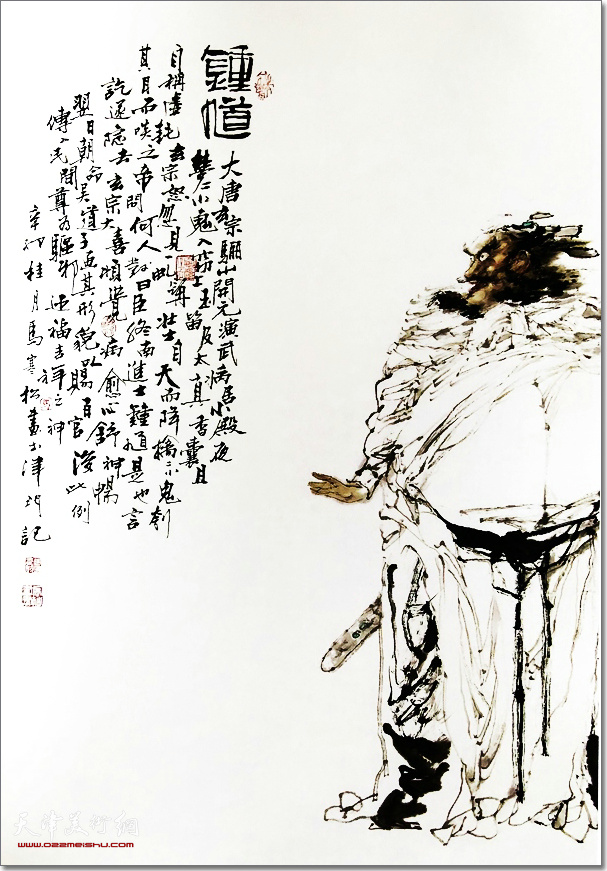 鍾馗
大唐玄宗驪山開元演武病居小殿夜
夢一小鬼入竊上玉笛及太真香囊且
自稱虛耗玄宗怒忽見一虬髯壯士自天而降擒小鬼刳
其目而啖之帝問何人對曰臣終南進士鍾馗是也言
訖遂隱去玄宗大喜頓覺病愈心舒神暢
翌日朝命吳道子画其形貌以賜百官後此例
傳入民間尊為驅邪降福吉祥之神
辛卯桂月馬寒松畫於津門記
天津美術網
www.022meishu.com